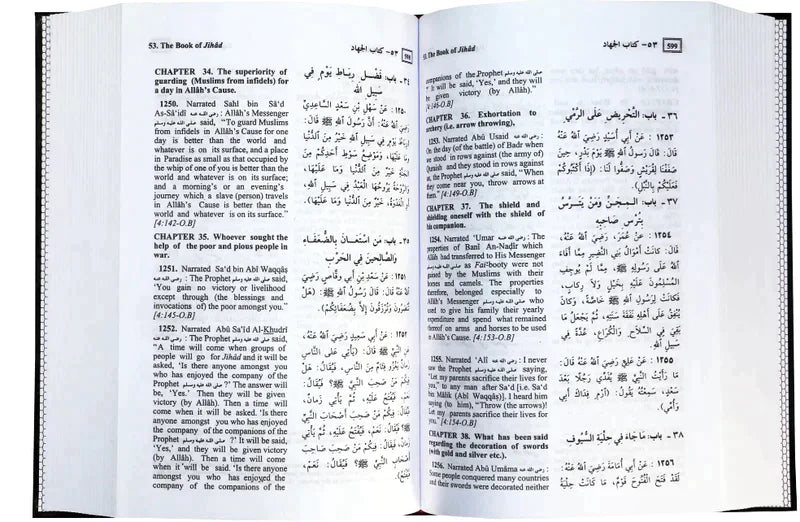 53. The Book of Jihâd
٥٣- كتاب الجهاد
CHAPTER 34. The superiority of
guarding (Muslims from infidels) for
a day in Allâh's Cause.
1250. Narrated Sahl bin Sâ'd
As-Sâ'idî رضي الله عنه : Allâh's Messenger
صلى الله عليه وسلم said, "To guard Muslims
from infidels in Allâh's Cause for one
day is better than the world and
whatever is on its surface, and a place
in Paradise as small as that occupied by
the whip of one of you is better than the
world and whatever is on its surface;
and a morning's or an evening's
journey which a slave (person) travels in
Allâh's Cause is better than the
world and whatever is on its surface."
[4:142-O.B]
CHAPTER 35. Whoever sought the
help of the poor and pious people in
war.
1251. Narrated Sa'd bin Abî Waqqâs
رضي الله عنه : The Prophet صلى الله عليه وسلم said,
'You gain no victory or livelihood
except through (the blessings and
invocations of) the poor amongst you."
[4:145-O.B]
1252. Narrated Abû Sa'îd Al-Khudrî
رضي الله عنه : The Prophet صلى الله عليه وسلم said,
"A time will come when groups of
people will go for Jihâd and it will be
asked, 'Is there anyone amongst you
who has enjoyed the company of the
Prophet صلى الله عليه وسلم ?' The answer will
be, 'Yes.' Then they will be given
victory (by Allâh). Then a time will
come when it will be asked. 'Is there
anyone amongst you who has enjoyed
the company of the companions of the
Prophet صلى الله عليه وسلم ?' It will be said,
'Yes,' and they will be given victory
(by Allâh). Then a time will come
when it will be said. 'Is there anyone
amongst you who has enjoyed the
company of the companions of the
٣٤- باب: فَضْلِ رِبَاطِ يَوْمٍ فِي
سَبِيلِ اللهِ
١٢٥٠: عَنْ سَهْلِ بْنِ سَعْدٍ السَّاعِدِيِّ
رَضِيَ اللهُ عَنْهُ: أَنَّ رَسُولَ اللهِ ﷺ قَالَ:
(رِبَاطُ يَوْمٍ فِي سَبِيلِ اللهِ خَيْرٌ مِنَ الدُّنْيَا
وَمَا عَلَيْهَا، وَمَوْضِعُ سَوْطِ أَحَدِكُمْ مِنَ
الجَنَّةِ خَيْرٌ مِنَ الدُّنْيَا وَمَا عَلَيْهَا،
وَالرَّوْحَةُ يَرُوحُهَا العَبْدُ فِي سَبِيلِ اللهِ،
أَوِ الغَدْوَةُ، خَيْرٌ مِنَ الدُّنْيَا وَمَا عَلَيْهَا).
٣٥- باب: مَنِ اسْتَعَانَ بِالضُّعَفَاءِ
وَالصَّالِحِينَ فِي الحَرْبِ
١٢٥١: عَنْ سَعْدِ بْنِ أَبِي وَقَّاصٍ رَضِيَ
اللهُ عَنْهُ قَالَ: قَالَ رَسُولُ اللهِ ﷺ: (هَلْ
تُنْصَرُونَ وَتُرْزَقُونَ إِلَّا بِضُعَفَائِكُمْ).
١٢٥٢: عَنْ أَبِي سَعِيدٍ رَضِيَ اللهُ عَنْهُ،
عَنِ النَّبِيِّ ﷺ قَالَ: (يَأْتِي عَلَى النَّاسِ
زَمَانٌ يَغْزُو فِئَامٌ مِنَ النَّاسِ، فَيُقَالُ: هَلْ
فِيكُمْ مَنْ صَحِبَ النَّبِيَّ ﷺ؟ فَيُقَالُ:
نَعَمْ، فَيُفْتَحُ عَلَيْهِ، ثُمَّ يَأْتِي زَمَانٌ،
فَيُقَالُ: فِيكُمْ مَنْ صَحِبَ أَصْحَابَ النَّبِيِّ
ﷺ؟ فَيُقَالُ: نَعَمْ، فَيُفْتَحُ عَلَيْهِ، ثُمَّ يَأْتِي
زَمَانٌ فَيُقَالُ: فِيكُمْ مَنْ صَحِبَ صَاحِبَ
أَصْحَابِ النَّبِيِّ ﷺ؟ فَيُقَالُ: نَعَمْ،
فَيُفْتَحُ).
The Book of Jihâd
٥٣- كتاب الجهاد
599
companions of the Prophet صلى الله عليه وسلم
It will be said, 'Yes,' and they will
be given victory (by Allâh)."
[4:146-O.B]
CHAPTER 36. Exhortation to
archery (i.e. arrow throwing),
1253. Narrated Abû Usaid رضي الله عنه :
On the day (of the battle) of Badr when
we stood in rows against (the army of)
Quraish and they stood in rows against
us, the Prophet صلى الله عليه وسلم said, "When
they come near you, throw arrows at
them." [4:149-O.B]
CHAPTER 37. The shield and
shielding oneself with the shield of
his companion.
1254. Narrated 'Umar رضي الله عنه : The
properties of Banî An-Nadîr which
Allâh had transferred to His Messenger
صلى الله عليه وسلم as Fai'-booty were not
gained by the Muslims with their
horses and camels. The properties
therefore, belonged especially to
Allâh's Messenger صلى الله عليه وسلم who
used to give his family their yearly
expenditure and spend what remained
thereof on arms and horses to be used
in Allâh's Cause. [4:153-O.B]
1255. Narrated 'Alî رضي الله عنه : I never
saw the Prophet صلى الله عليه وسلم saying,
"Let my parents sacrifice their lives for
you," to any man after Sa'd [i.e. Sa'd
bin Mâlik (Abî Waqqâs)]. I heard him
saying (to him), "Throw (the arrows)!
Let my parents sacrifice their lives for
you." [4:154-O.B]
CHAPTER 38. What has been said
regarding the decoration of swords
(with gold and silver etc.).
1256. Narrated Abû Umâma رضي الله عنه :
Some people conquered many countries
and their swords were decorated neither
٣٦- باب: التَّحْرِيضِ عَلَى الرَّمْيِ
١٢٥٣: عَنْ أَبِي أُسَيْدٍ رَضِيَ اللهُ عَنْهُ
قَالَ: قَالَ رَسُولُ اللهِ ﷺ يَوْمَ بَدْرٍ، حِينَ
صَفَفْنَا لِقُرَيْشٍ وَصَفُّوا لَنَا: (إِذَا أَكْثَبُوكُمْ
فَعَلَيْكُمْ بِالنَّبْلِ).
٣٧- باب: الـمِجَنِّ وَمَنْ يَتَتَرَّسُ
بِتُرْسِ صَاحِبِهِ
١٢٥٤: عَنْ عُمَرَ، رَضِيَ اللهُ عَنْهُ،
قَالَ: كَانَتْ أَمْوَالُ بَنِي النَّضِيرِ مِمَّا أَفَاءَ
اللهُ عَلَى رَسُولِهِ ﷺ، مِمَّا لَمْ يُوجِفِ
المُسْلِمُونَ عَلَيْهِ بِخَيْلٍ وَلَا رِكَابٍ،
فَكَانَتْ لِرَسُولِ اللهِ ﷺ خَاصَّةً، وَكَانَ
يُنْفِقُ عَلَى أَهْلِهِ نَفَقَةَ سَنَتِهِ، ثُمَّ يَجْعَلُ مَا
بَقِيَ فِي السِّلَاحِ وَالْكُرَاعِ، عُدَّةً فِي
سَبِيلِ اللهِ.
١٢٥٥: عَنْ عَلِيٍّ رَضِيَ اللهُ عَنْهُ قَالَ:
مَا رَأَيْتُ النَّبِيَّ ﷺ يُفَدِّي رَجُلًا بَعْدَ
سَعْدٍ، سَمِعْتُهُ يَقُولُ: (ارْمِ فِدَاكَ أَبِي
وَأُمِّي).
٣٨- باب: مَا جَاءَ فِي حِلْيَةِ السُّيُوفِ
١٢٥٦: عَنْ أَبِي أُمَامَةَ رَضِيَ اللهُ عَنْهُ قَالَ:
لَقَدْ فَتَحَ الْفُتُوحَ قَوْمٌ، مَا كَانَتْ حِلْيَةُ